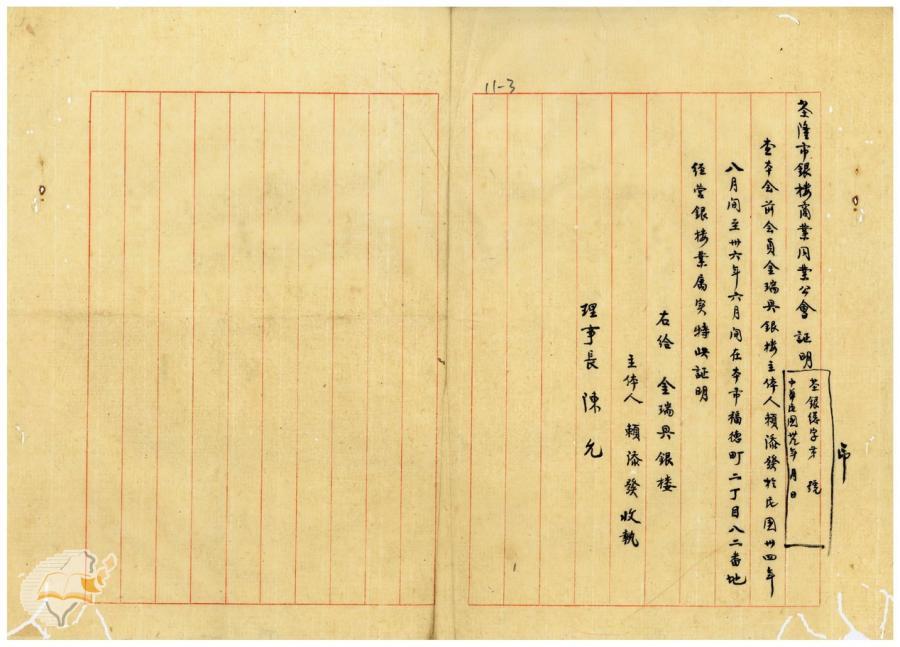 11-3
基隆市銀楼商業同業公會 証明
基銀總字第 號
中華民國卅 年 月 日
查本会前会員金瑞興銀楼主体人賴添發於民國卅四年
八月间至卅六年六月间在本市福德町二丁目八二番地
經营銀楼業属实特此証明
右给 金瑞興銀楼
主体人 賴添發 收執
理事長 陳允